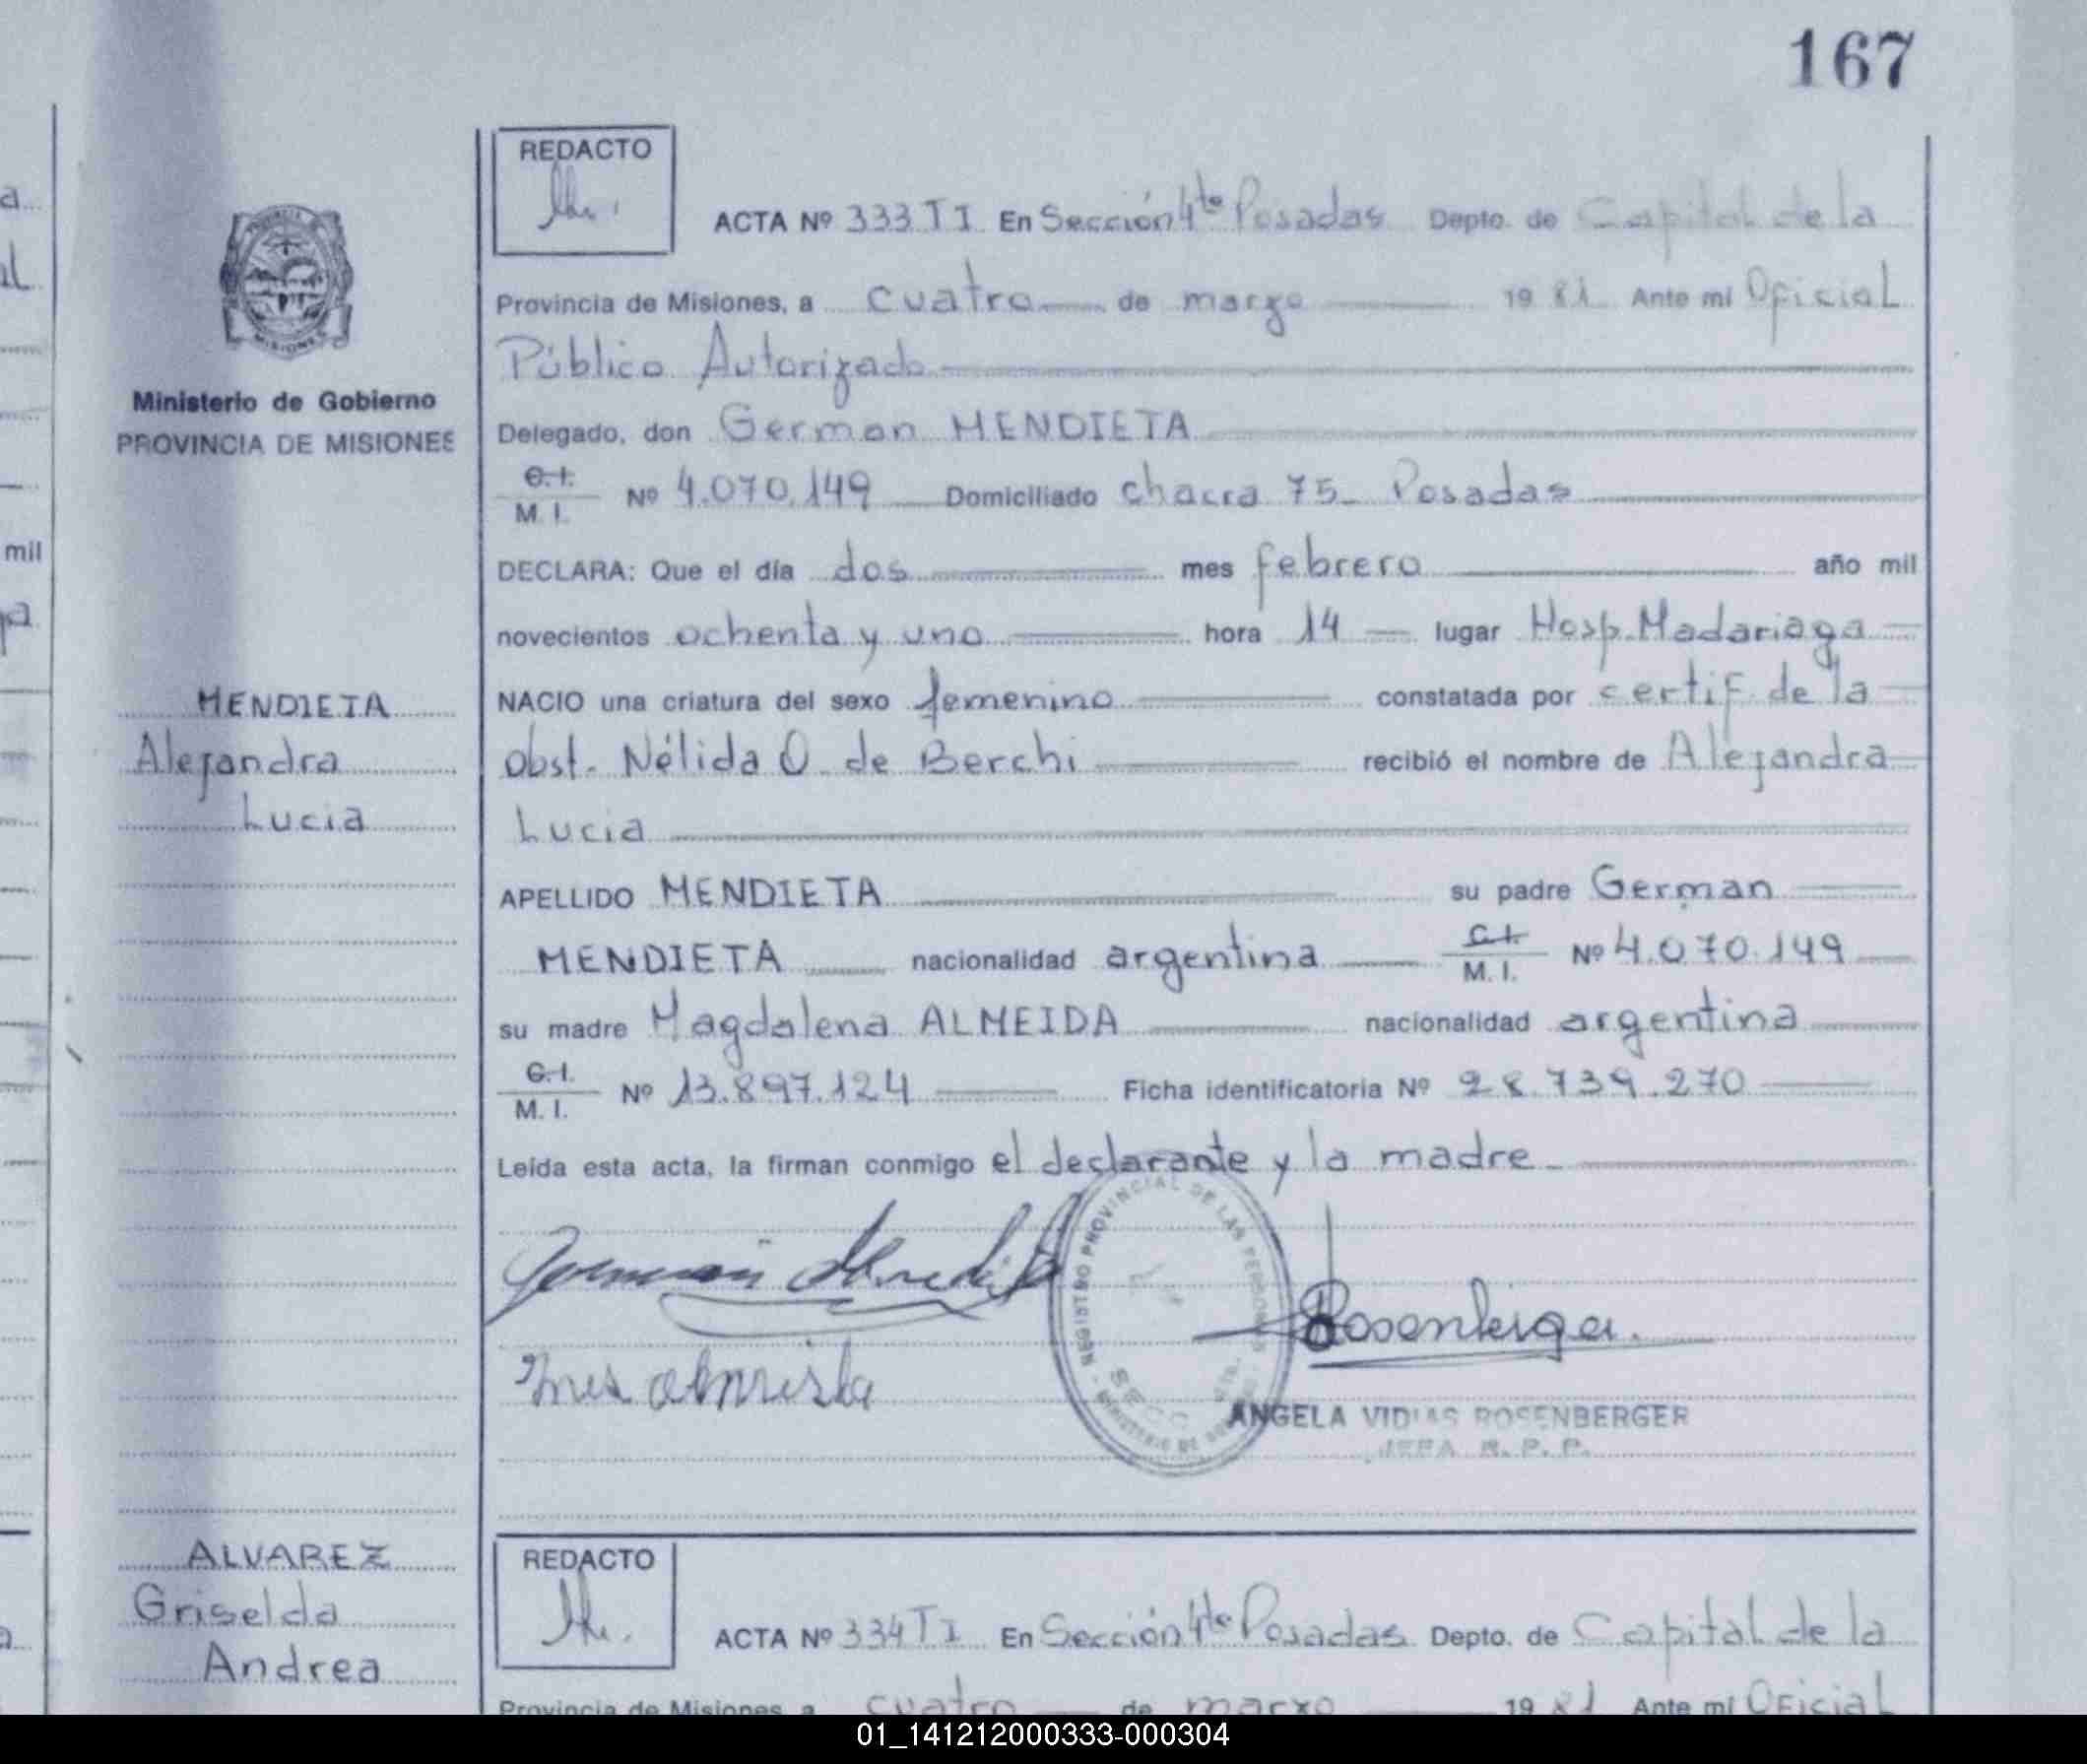 167
REDACTO
ACTA Nº 333 T I En Sección 4ta Posadas Depto. de Capital de la
Provincia de Misiones, a cuatro de marzo 19 81 Ante mi Oficial
Público Autorizado
Ministerio de Gobierno
PROVINCIA DE MISIONES
Delegado, don German MENDIETA
C.I. M. I. Nº 4.070.149 Domiciliado chacra 75_ Posadas
DECLARA: Que el día dos mes febrero año mil
novecientos ochenta y uno hora 14 lugar Hosp. Madariaga
MENDIETA
Alejandra
Lucia
NACIO una criatura del sexo femenino constatada por certif. de la
obst. Nélida O. de Berchi recibió el nombre de Alejandra
Lucia
APELLIDO MENDIETA su padre German
MENDIETA nacionalidad argentina C.I. M. I. Nº 4.070.149
su madre Magdalena ALMEIDA nacionalidad argentina
C.I. M. I. Nº 13.897.124 Ficha identificatoria Nº 28.739.270
Leída esta acta, la firman conmigo el declarante y la madre
REGISTRO PROVINCIAL DE LAS PERSONAS
Rosenberger
ANGELA VIDIAS ROSENBERGER
JEFA R. P. P.
ALVAREZ
Griselda
Andrea
REDACTO
ACTA Nº 334 T I En Sección 4ta Posadas Depto. de Capital de la
Provincia de Misiones, a cuatro de marzo 19 81 Ante mi Oficial
mil
01_141212000333-000304